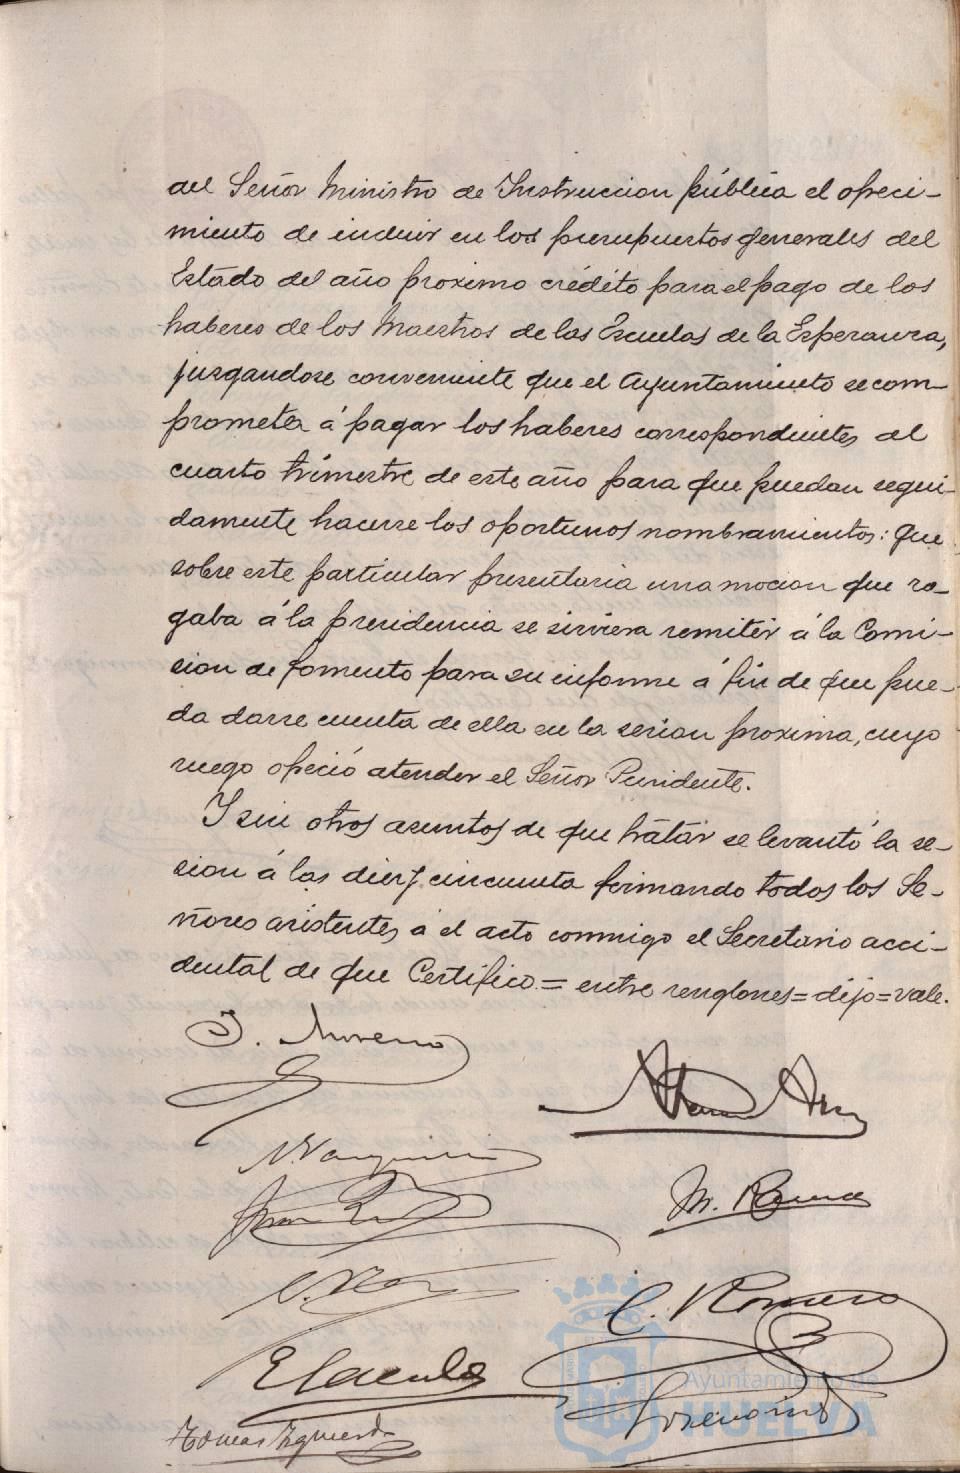 del Señor Ministro de Instruccion pública el ofreci-
miento de incluir en los presupuestos generales del
Estado del año proximo crédito para el pago de los
haberes de los Maestros de las Escuelas de la Esperanza,
juzgandose conveniente que el Ayuntamiento se com-
prometa á pagar los haberes correspondientes al
cuarto trimestre de este año para que puedan segui-
damente hacerse los oportunos nombramientos: que
sobre este particular presentaria una mocion que ro-
gaba á la presidencia se sirviera remitir á la Comi-
sion de fomento para su informe á fin de que pue-
da darse cuenta de ella en la sesion proxima, cuyo
ruego ofreció atender el Señor Presidente.
Y sin otros asuntos de que tratar se levantó la se-
sion á las diez y cincuenta firmando todos los Se-
ñores asistentes á el acto conmigo el Secretario acci-
dental de que Certifico.= entre renglones=dijo=vale.
J. Moreno
M. 
C. Romero
Tomas Izquierdo
Ayuntamiento de
HUELVA